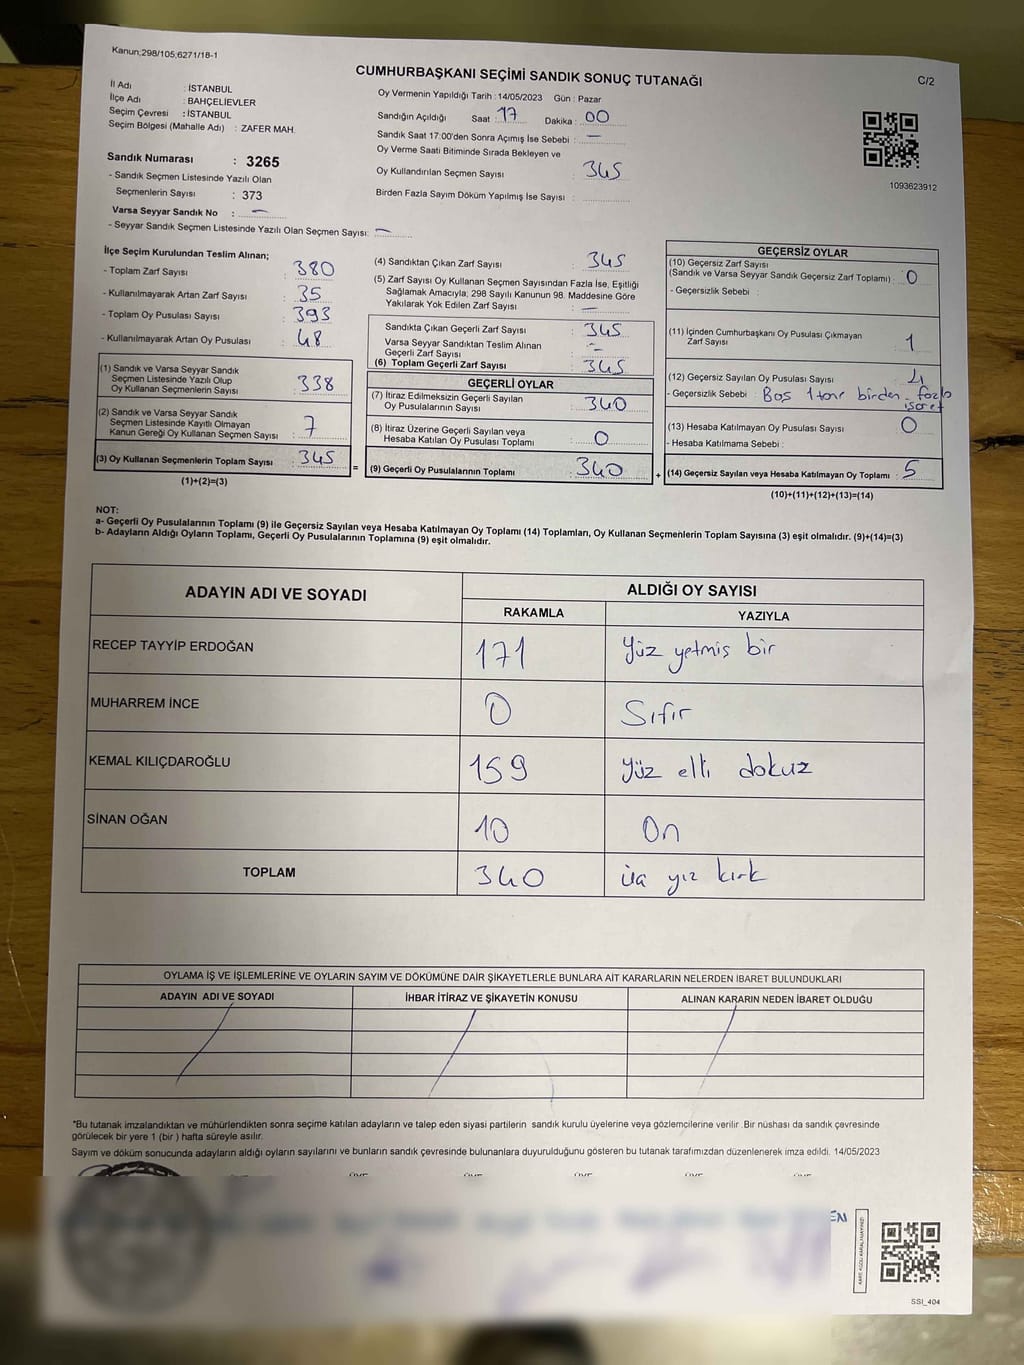 Kanun;298/105;6271/18-1
CUMHURBAŞKANI SEÇİMİ SANDIK SONUÇ TUTANAĞI
C/2
İl Adı : İSTANBUL
İlçe Adı : BAHÇELİEVLER
Seçim Çevresi : İSTANBUL
Seçim Bölgesi (Mahalle Adı) : ZAFER MAH.
Oy Vermenin Yapıldığı Tarih : 14/05/2023 Gün : Pazar
Sandığın Açıldığı Saat : 17 Dakika : 00
Sandık Saat 17:00'den Sonra Açımış İse Sebebi : —
Oy Verme Saati Bitiminde Sırada Bekleyen ve
Oy Kullandırılan Seçmen Sayısı : 345
Birden Fazla Sayım Döküm Yapılmış İse Sayısı :
1093623912
Sandık Numarası : 3265
- Sandık Seçmen Listesinde Yazılı Olan
Seçmenlerin Sayısı : 373
Varsa Seyyar Sandık No : —
- Seyyar Sandık Seçmen Listesinde Yazılı Olan Seçmen Sayısı: —
İlçe Seçim Kurulundan Teslim Alınan;
- Toplam Zarf Sayısı : 380
- Kullanılmayarak Artan Zarf Sayısı : 35
- Toplam Oy Pusulası Sayısı : 393
- Kullanılmayarak Artan Oy Pusulası : 48
(1) Sandık ve Varsa Seyyar Sandık
Seçmen Listesinde Yazılı Olup
Oy Kullanan Seçmenlerin Sayısı : 338
(2) Sandık ve Varsa Seyyar Sandık
Seçmen Listesinde Kayıtlı Olmayan
Kanun Gereği Oy Kullanan Seçmen Sayısı : 7
(3) Oy Kullanan Seçmenlerin Toplam Sayısı : 345
(1)+(2)=(3)
(4) Sandıktan Çıkan Zarf Sayısı : 345
(5) Zarf Sayısı Oy Kullanan Seçmen Sayısından Fazla İse, Eşitliği
Sağlamak Amacıyla, 298 Sayılı Kanunun 98. Maddesine Göre
Yakılarak Yok Edilen Zarf Sayısı : —
Sandıkta Çıkan Geçerli Zarf Sayısı : 345
Varsa Seyyar Sandıktan Teslim Alınan
Geçerli Zarf Sayısı : —
(6) Toplam Geçerli Zarf Sayısı : 345
GEÇERLİ OYLAR
(7) İtiraz Edilmeksizin Geçerli Sayılan
Oy Pusulalarının Sayısı : 340
(8) İtiraz Üzerine Geçerli Sayılan veya
Hesaba Katılan Oy Pusulası Toplamı : 0
= (9) Geçerli Oy Pusulalarının Toplamı : 340 +
GEÇERSİZ OYLAR
(10) Geçersiz Zarf Sayısı
(Sandık ve Varsa Seyyar Sandık Geçersiz Zarf Toplamı) : 0
- Geçersizlik Sebebi :
(11) İçinden Cumhurbaşkanı Oy Pusulası Çıkmayan
Zarf Sayısı : 1
(12) Geçersiz Sayılan Oy Pusulası Sayısı : 4
- Geçersizlik Sebebi : Boş 1 tane birden fazla
işaret
(13) Hesaba Katılmayan Oy Pusulası Sayısı : 0
- Hesaba Katılmama Sebebi :
(14) Geçersiz Sayılan veya Hesaba Katılmayan Oy Toplamı : 5
(10)+(11)+(12)+(13)=(14)
NOT:
a- Geçerli Oy Pusulalarının Toplamı (9) ile Geçersiz Sayılan veya Hesaba Katılmayan Oy Toplamı (14) Toplamları, Oy Kullanan Seçmenlerin Toplam Sayısına (3) eşit olmalıdır. (9)+(14)=(3)
b- Adayların Aldığı Oyların Toplamı, Geçerli Oy Pusulalarının Toplamına (9) eşit olmalıdır.
ADAYIN ADI VE SOYADI
ALDIĞI OY SAYISI
RAKAMLA YAZIYLA
RECEP TAYYİP ERDOĞAN 171 Yüz yetmiş bir
MUHARREM İNCE 0 Sıfır
KEMAL KILIÇDAROĞLU 159 Yüz elli dokuz
SİNAN OĞAN 10 On
TOPLAM 340 üç yüz kırk
OYLAMA İŞ VE İŞLEMLERİNE VE OYLARIN SAYIM VE DÖKÜMÜNE DAİR ŞİKAYETLERLE BUNLARA AİT KARARLARIN NELERDEN İBARET BULUNDUKLARI
ADAYIN ADI VE SOYADI İHBAR İTİRAZ VE ŞİKAYETİN KONUSU ALINAN KARARIN NEDEN İBARET OLDUĞU
*Bu tutanak imzalandıktan ve mühürlendikten sonra seçime katılan adayların ve talep eden siyasi partilerin sandık kurulu üyelerine veya gözlemcilerine verilir .Bir nüshası da sandık çevresinde
görülecek bir yere 1 (bir ) hafta süreyle asılır.
Sayım ve döküm sonucunda adayların aldığı oyların sayılarını ve bunların sandık çevresinde bulunanlara duyurulduğunu gösteren bu tutanak tarafımızdan düzenlenerek imza edildi. 14/05/2023
EN
SSI_404